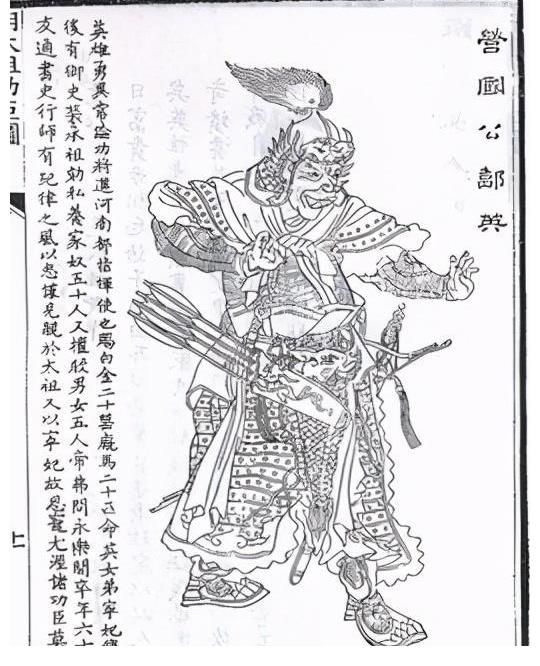 營國公郭英
英雄勇異常論功將進河南都指揮使之賜白金二十萬廄馬二十匹命英女弟寧妃
後有御史裴承祖劾私養家奴五十人又擅殺男女五人帝弗問永樂間卒年六十
友通書史行師有紀律之風以忠謹見親於太祖又以寧妃故恩寵尤渥諸功臣莫
明太祖功臣圖
上